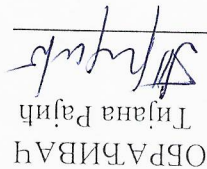 ОБРАЂИВАЧ
Тијана Рајић